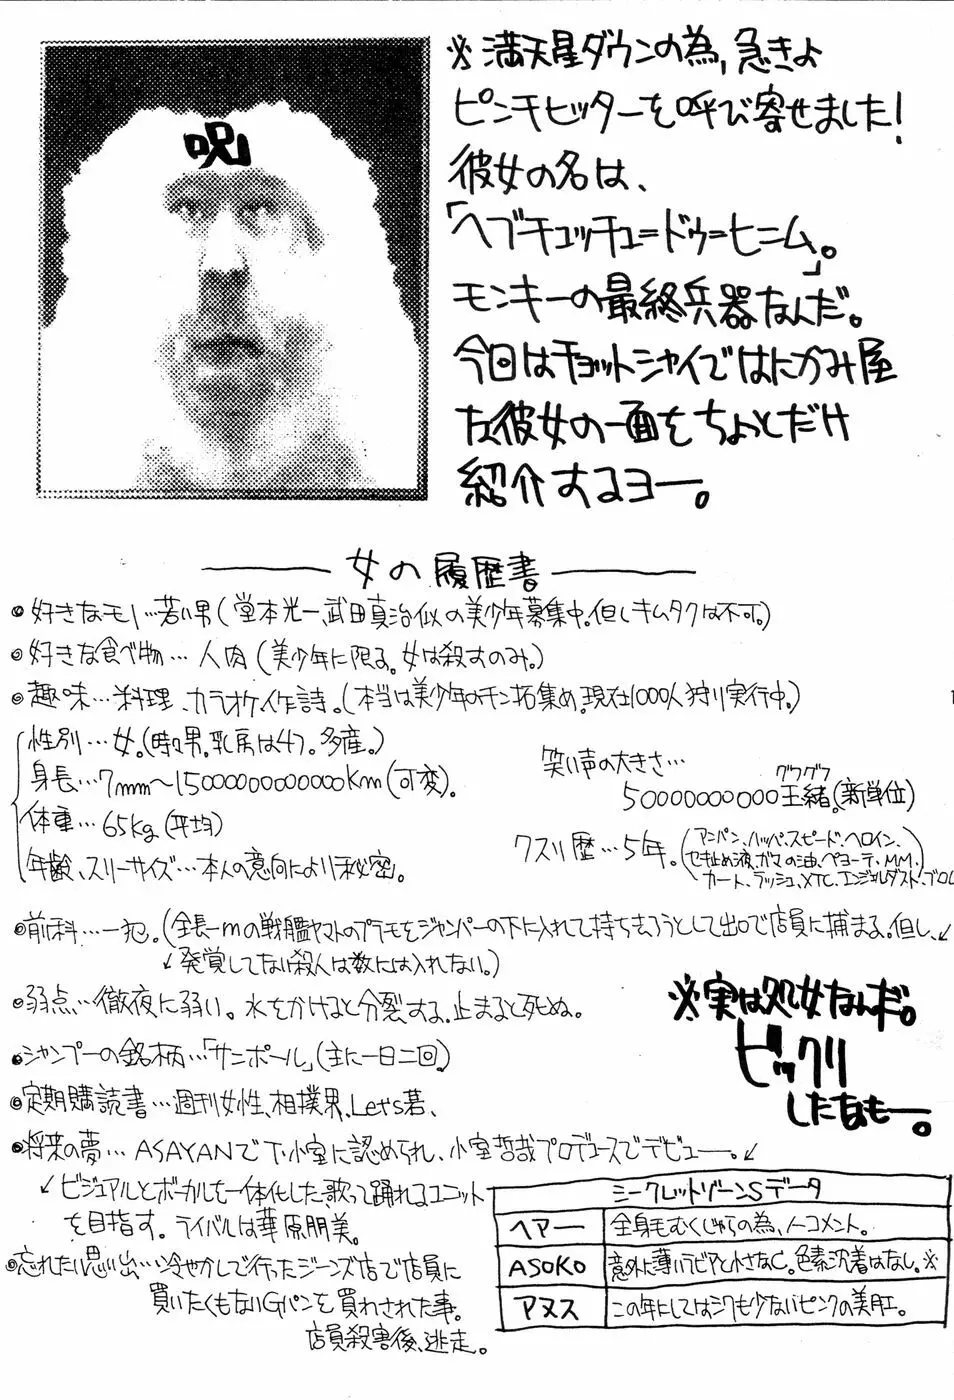 呪
※満天星ダウンの為,急きよ
ピンチヒッターを呼び寄せました!
彼女の名は、
「ヘブチュッチュ=ドゥ=ヒニム」。
モンキーの最終兵器なんだ。
今回はチョットシャイではにかみ屋
な彼女の一面をちょっとだけ
紹介するヨー。
女の履歴書
●好きなモノ…若い男(堂本光一、武田真治似の美少年募集中。但しキムタクは不可。)
●好きな食べ物…人肉(美少年に限る。女は殺すのみ。)
●趣味…料理、カラオケ、作詩。(本当は美少年のチン拓集め。現在1000人狩り実行中。)
性別…女。(時々男。乳房は47。多産。)
身長…7mm〜1500000000000Km(可変)。
体重…65kg(平均)
年齢、スリーサイズ…本人の意向により秘密。
笑い声の大きさ…
グワグワ
50000000000王緒。(新単位)
クスリ歴…5年。(アンパン、ハッパ、スピード、ヘロイン、
セキ止め液、ガマの油、ペヨーテ、MM、
カート、ラッシュ、XTC、エンジェルダスト、ブロ
●前科…一犯。(全長一mの戦艦ヤマトのプラモをジャンパーの下に入れて持ち去ろうとして出口で店員に捕まる。但し、↙
↙発覚してない殺人は数には入れない。)
●弱点…徹夜に弱い。水をかけると分裂する。止まると死ぬ。
●シャンプーの銘柄…「サンポール」(主に一日二回)
●定期購読書…週刊女性、相撲界、Let's若、
※実は処女なんだ。
ビックリ
したなもー。
●将来の夢…ASAYANで下小室に認められ、小室哲哉プロデュースでデビュー。↙
↙ビジュアルとボーカルを一体化した、歌って踊れるユニット
を目指す。ライバルは華原朋美。
●忘れたい思い出…冷やかしで行ったジーンズ店で店員に
買いたくもないGパンを買わされた事。
店員殺害後、逃走。
シークレットゾーンSデータ
ヘアー 全身毛むくじゃらの為、ノーコメント。
ASOKO 意外に薄いラビアと小さなC。色素沈着はなし。※
アヌス この年にしてはシワも少ないピンクの美肛。